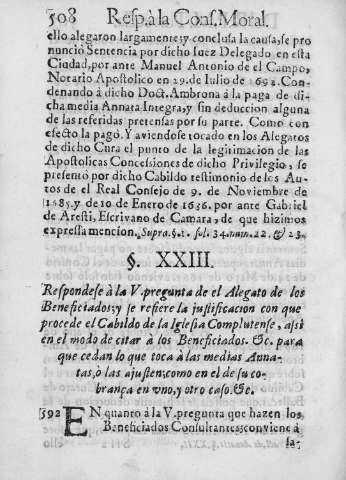 508 Resp. à la Cons. Moral.
ello alegaron largamente; y conclusa la causa, se pro
nunciò Sentencia por dicho Iuez Delegado en esta
Ciudad, por ante Manuel Antonio de el Campo,
Notario Apostolico en 29. de Iulio de 1692. Con-
denando à dicho Doct. Ambrona à la paga de di-
cha media Annata Integra, y sin deduccion alguna
de las referidas pretensas por su parte. Como con
efecto la pagò. Y aviendose tocado en los Alegatos
de dicho Cura el punto de la legitimacion de las
Apostolicas Concessiones de dicho Privilegio, se
presentò por dicho Cabildo testimonio de los Au-
tos de el Real Consejo de 9. de Noviembre de
1685. y de 10 de Enero de 1686. por ante Gabriel
de Aresti, Escrivano de Camara, de que hizimos
expressa mencion. Supra. §. 1. fol. 34. num. 22. & 23.
§. XXIII.
Respondese à la V. pregunta de el Alegato de los
Beneficiados; y se refiere la justificacion con que
procede el Cabildo de la Iglesia Complutense, assi
en el modo de citar à los Beneficiados. &c. para
que cedan lo que toca à las medias Anna-
tas, ò las ajusten; como en el de su co-
brança en vno, y otro caso. &c.
592 EN quanto à la V. pregunta que hazen los
Beneficiados Consultantes; conviene à
sa-